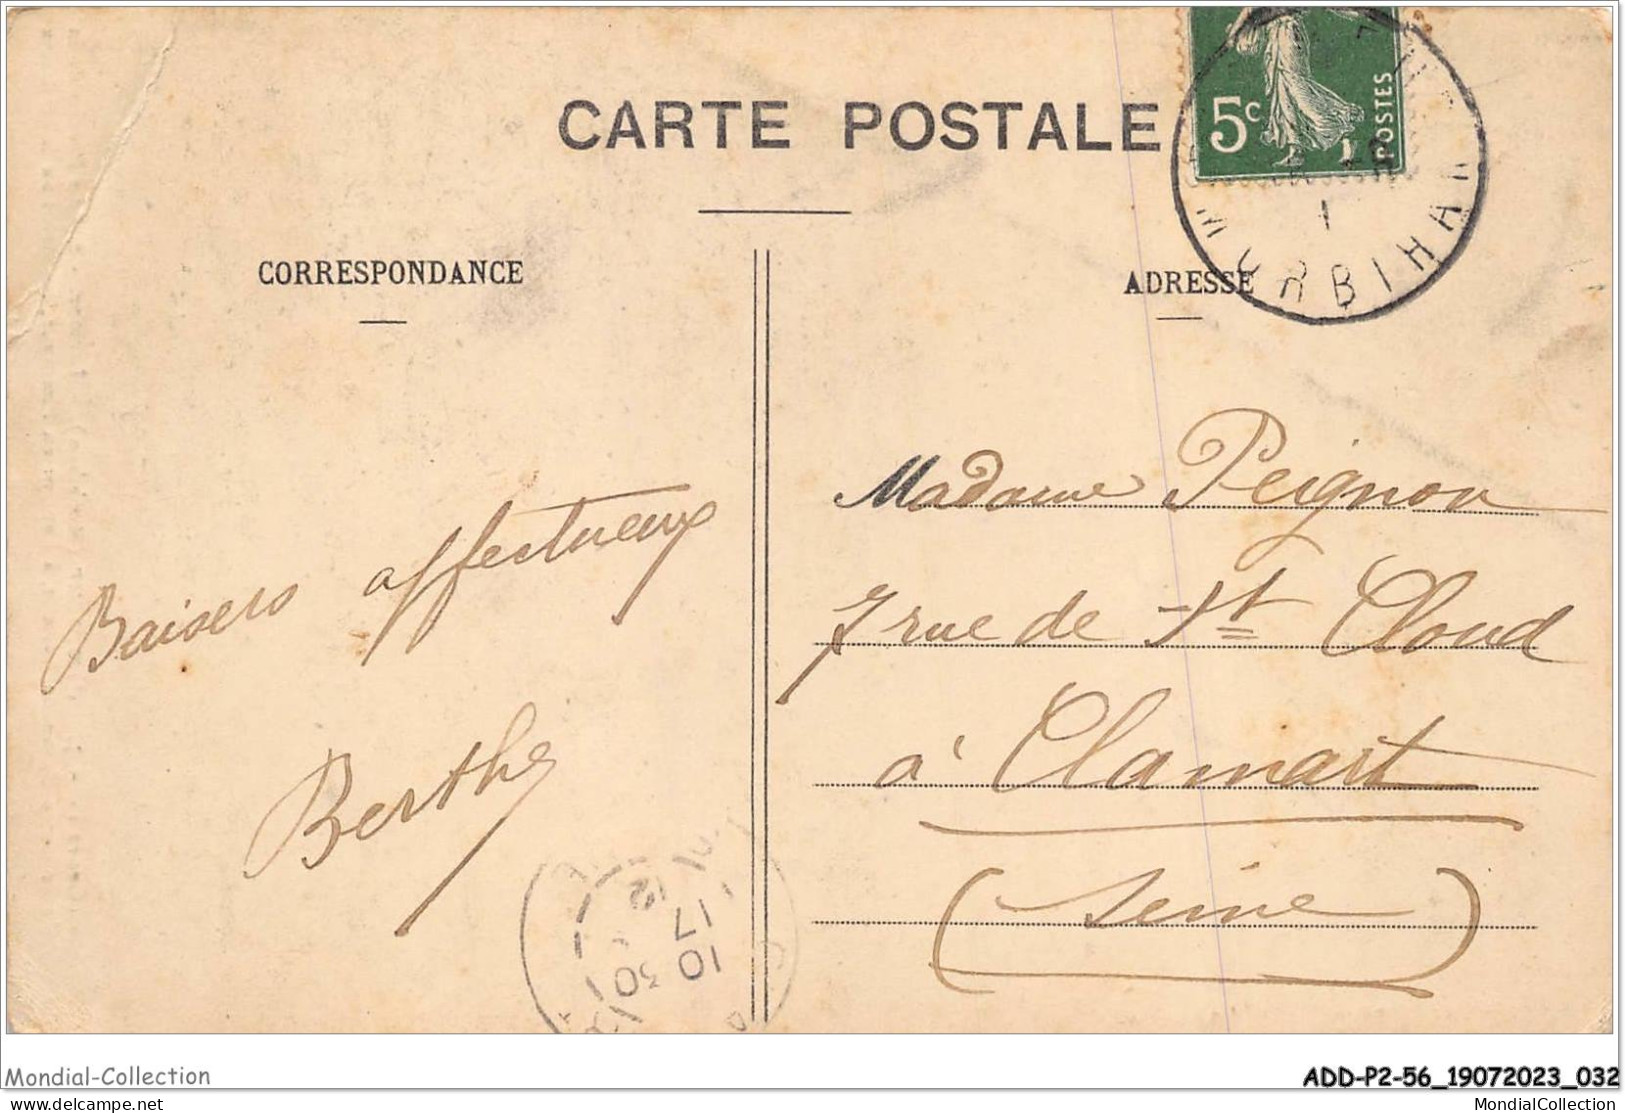 CARTE POSTALE
5c
POSTES
MORBIHAN
CORRESPONDANCE
ADRESSE
Baisers affectueux
Berthe
Madame Peignon
7 rue de St Cloud
à Clamart
(Seine)
12
17
10 30
Mondial-Collection
ADD-P2-56_19072023_032
delcampe.net
MondialCollection